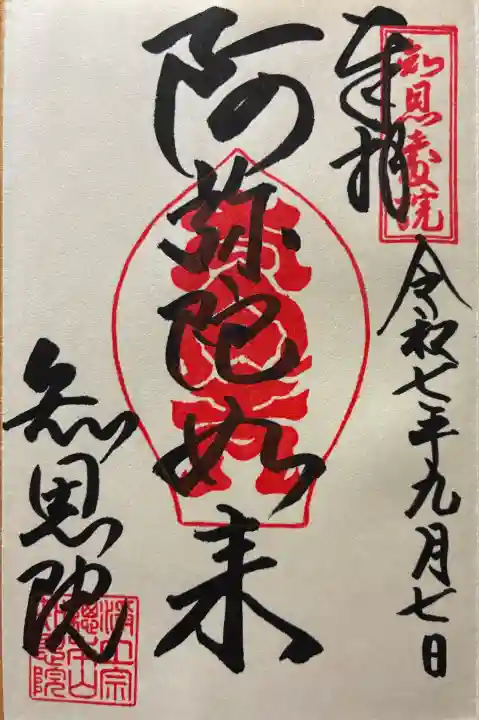 奉拝
令和七年九月七日
阿弥陀如来
知恩院
浄土宗
總本山
知恩院